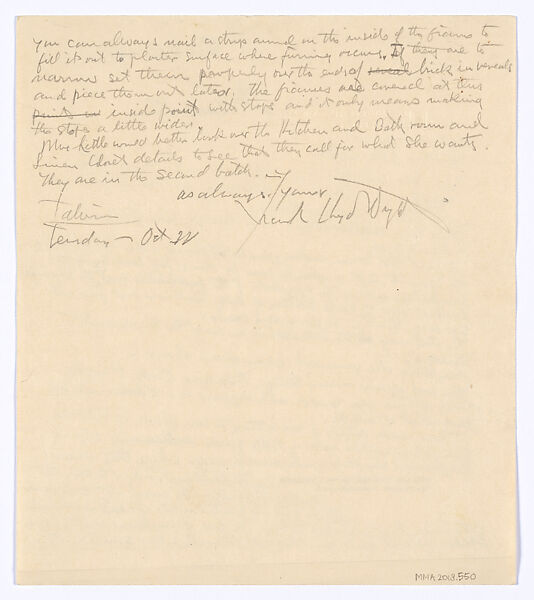 you can always nail a strip around on the inside of the frame to
fill it out to plaster surface where furring occurs. If they are to
narrow set them properly over the ends of brick in reveals
and piece them out later. The frames are covered at this
inside point with stops and it only means making
the stops a little wider.
Mrs. Little would better look over the Kitchen and Bath room and
Linen Closet details to see that they call for what she wants.
They are in the second batch.
as always, yours
Frank Lloyd Wright
Taliesin
Tuesday – Oct 22
MMA 2018.550